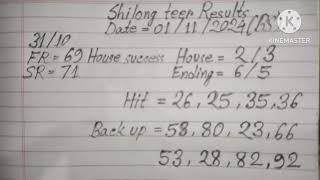 Shilong teer Results
Date = 01/11/2024
KINEMASTER
31/10
FR = 69 House success House = 2/3
SR = 71 Ending = 6/5
Hit = 26, 25, 35, 36
Back up = 58, 80, 23, 66
53, 28, 82, 92